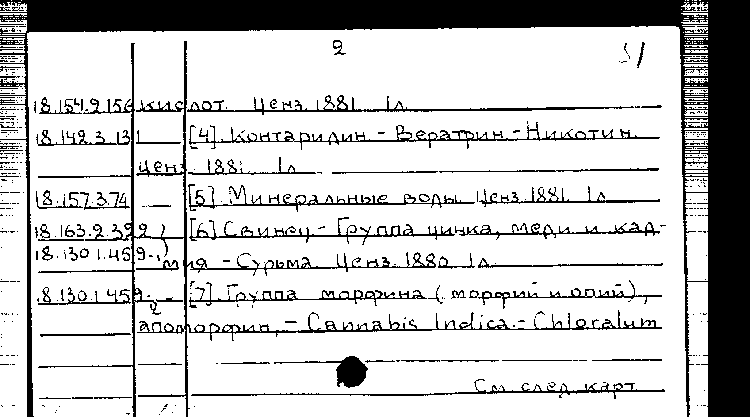 2
18.154.2.156 кислот. Ценз. 1881. 1л
18.142.3.131 [4]. Контаридин - Вератрин. - Никотин.
ценз. 1881. 1л
18.157.3.74 — [5]. Минеральные воды. Ценз. 1881. 1л
18.163.2.392 [6] Свинец - Группа цинка, меди и кад-
18.130.1.459-1 мия - Сурьма. Ценз. 1880. 1л.
18.130.1.459-2 - [7]. Группа морфина (морфий и опий),
апоморфин, - Cannabis Indica. - Chloralum
См след карт